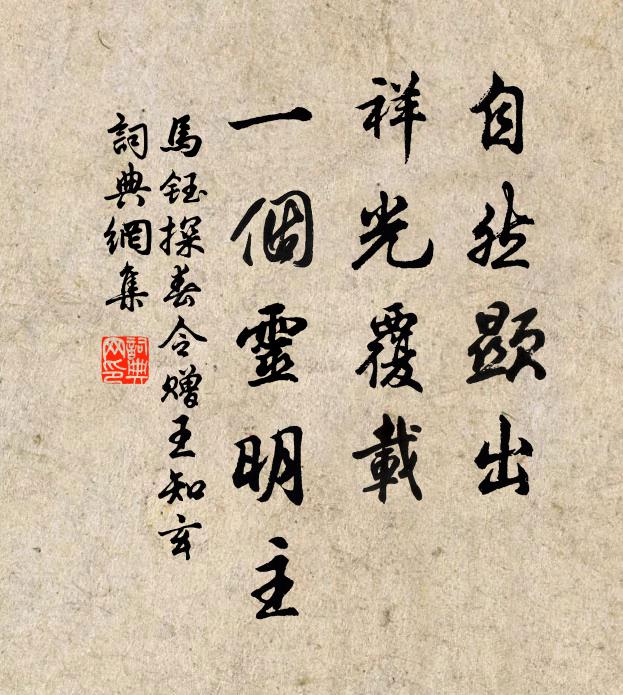 自然顯出
祥光覆載
一個靈明主
馬鈺探春令贈王知玄
詞典網集
詞典網印